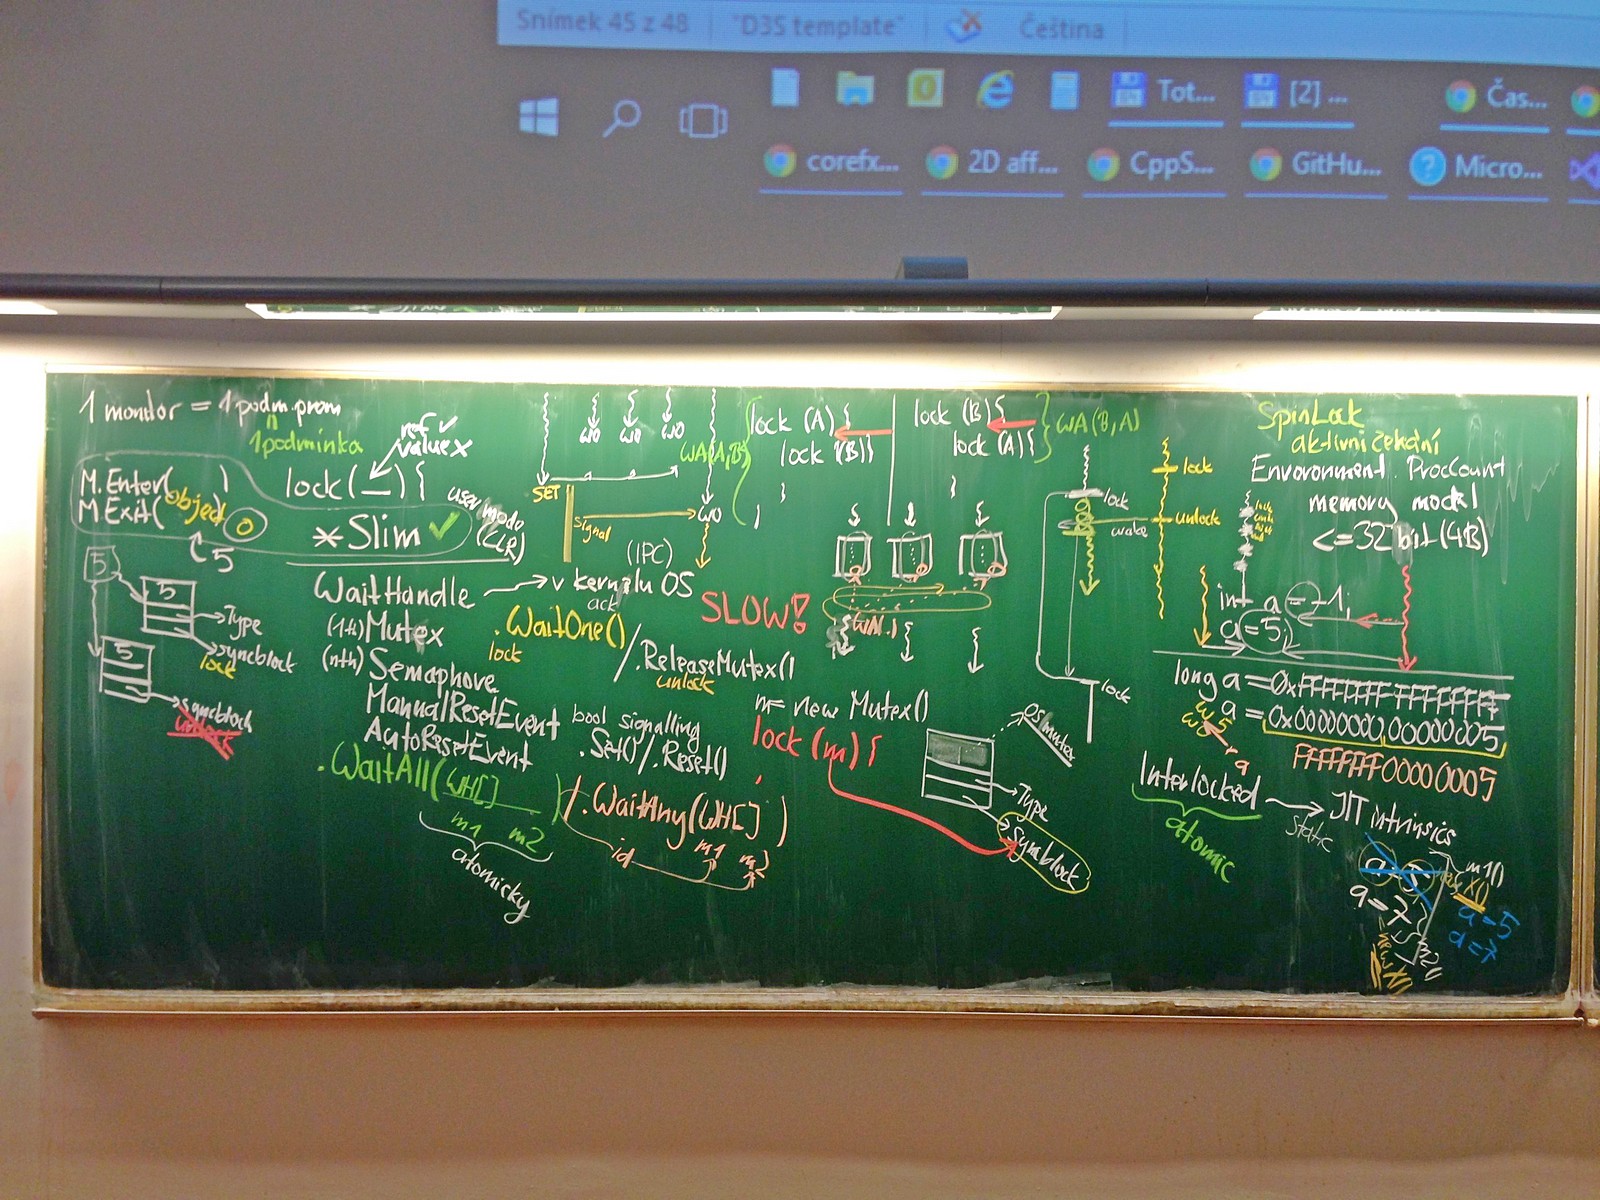 Snímek 45 z 48
"D3S template"
Čeština
Tot...
[2] ...
Čas...
corefx...
2D aff...
CppS...
GitHu...
Micro...
1 monitor = 1 podm. prom
1 podmínka
ref ✓
value x
M.Enter( )
M.Exit(
object
o
5
lock(_) {
*Slim ✓
user mode
(CLR)
5
5
Type
syncblock
lock
5
syncblock
unlock
WaitHandle → v kernelu OS
(IPC)
(1th) Mutex
(nth) Semaphore
ManualResetEvent
AutoResetEvent
ack
.WaitOne()
lock
/.ReleaseMutex()
unlock
bool signalling
.Set()/.Reset()
.WaitAll(WH[] )
m1 m2
atomicky
/.WaitAny(WH[] )
id
m1 m2
SET
signal
WO
WO
WO
WO
WA(A,B)
lock (A) {
lock (B){
}
}
lock (B){
lock (A){
}
WA(B,A)
SLOW!
m = new Mutex()
lock (m) {
OS mutex
Type
Syncblock
lock
wake
lock
lock
unlock
SpinLock
aktivní čekání
Environment. ProcCount
memory model
<=32 bit (4B)
int a = -1;
a = 5;
long a = 0xFFFFFFFF FFFFFFFF
a = 0x00000000 00000005
FFFFFFFF00000005
Interlocked → JIT intrinsics
static
atomic
m1()
X()
a = 7
a = 5
a = 7
new X()